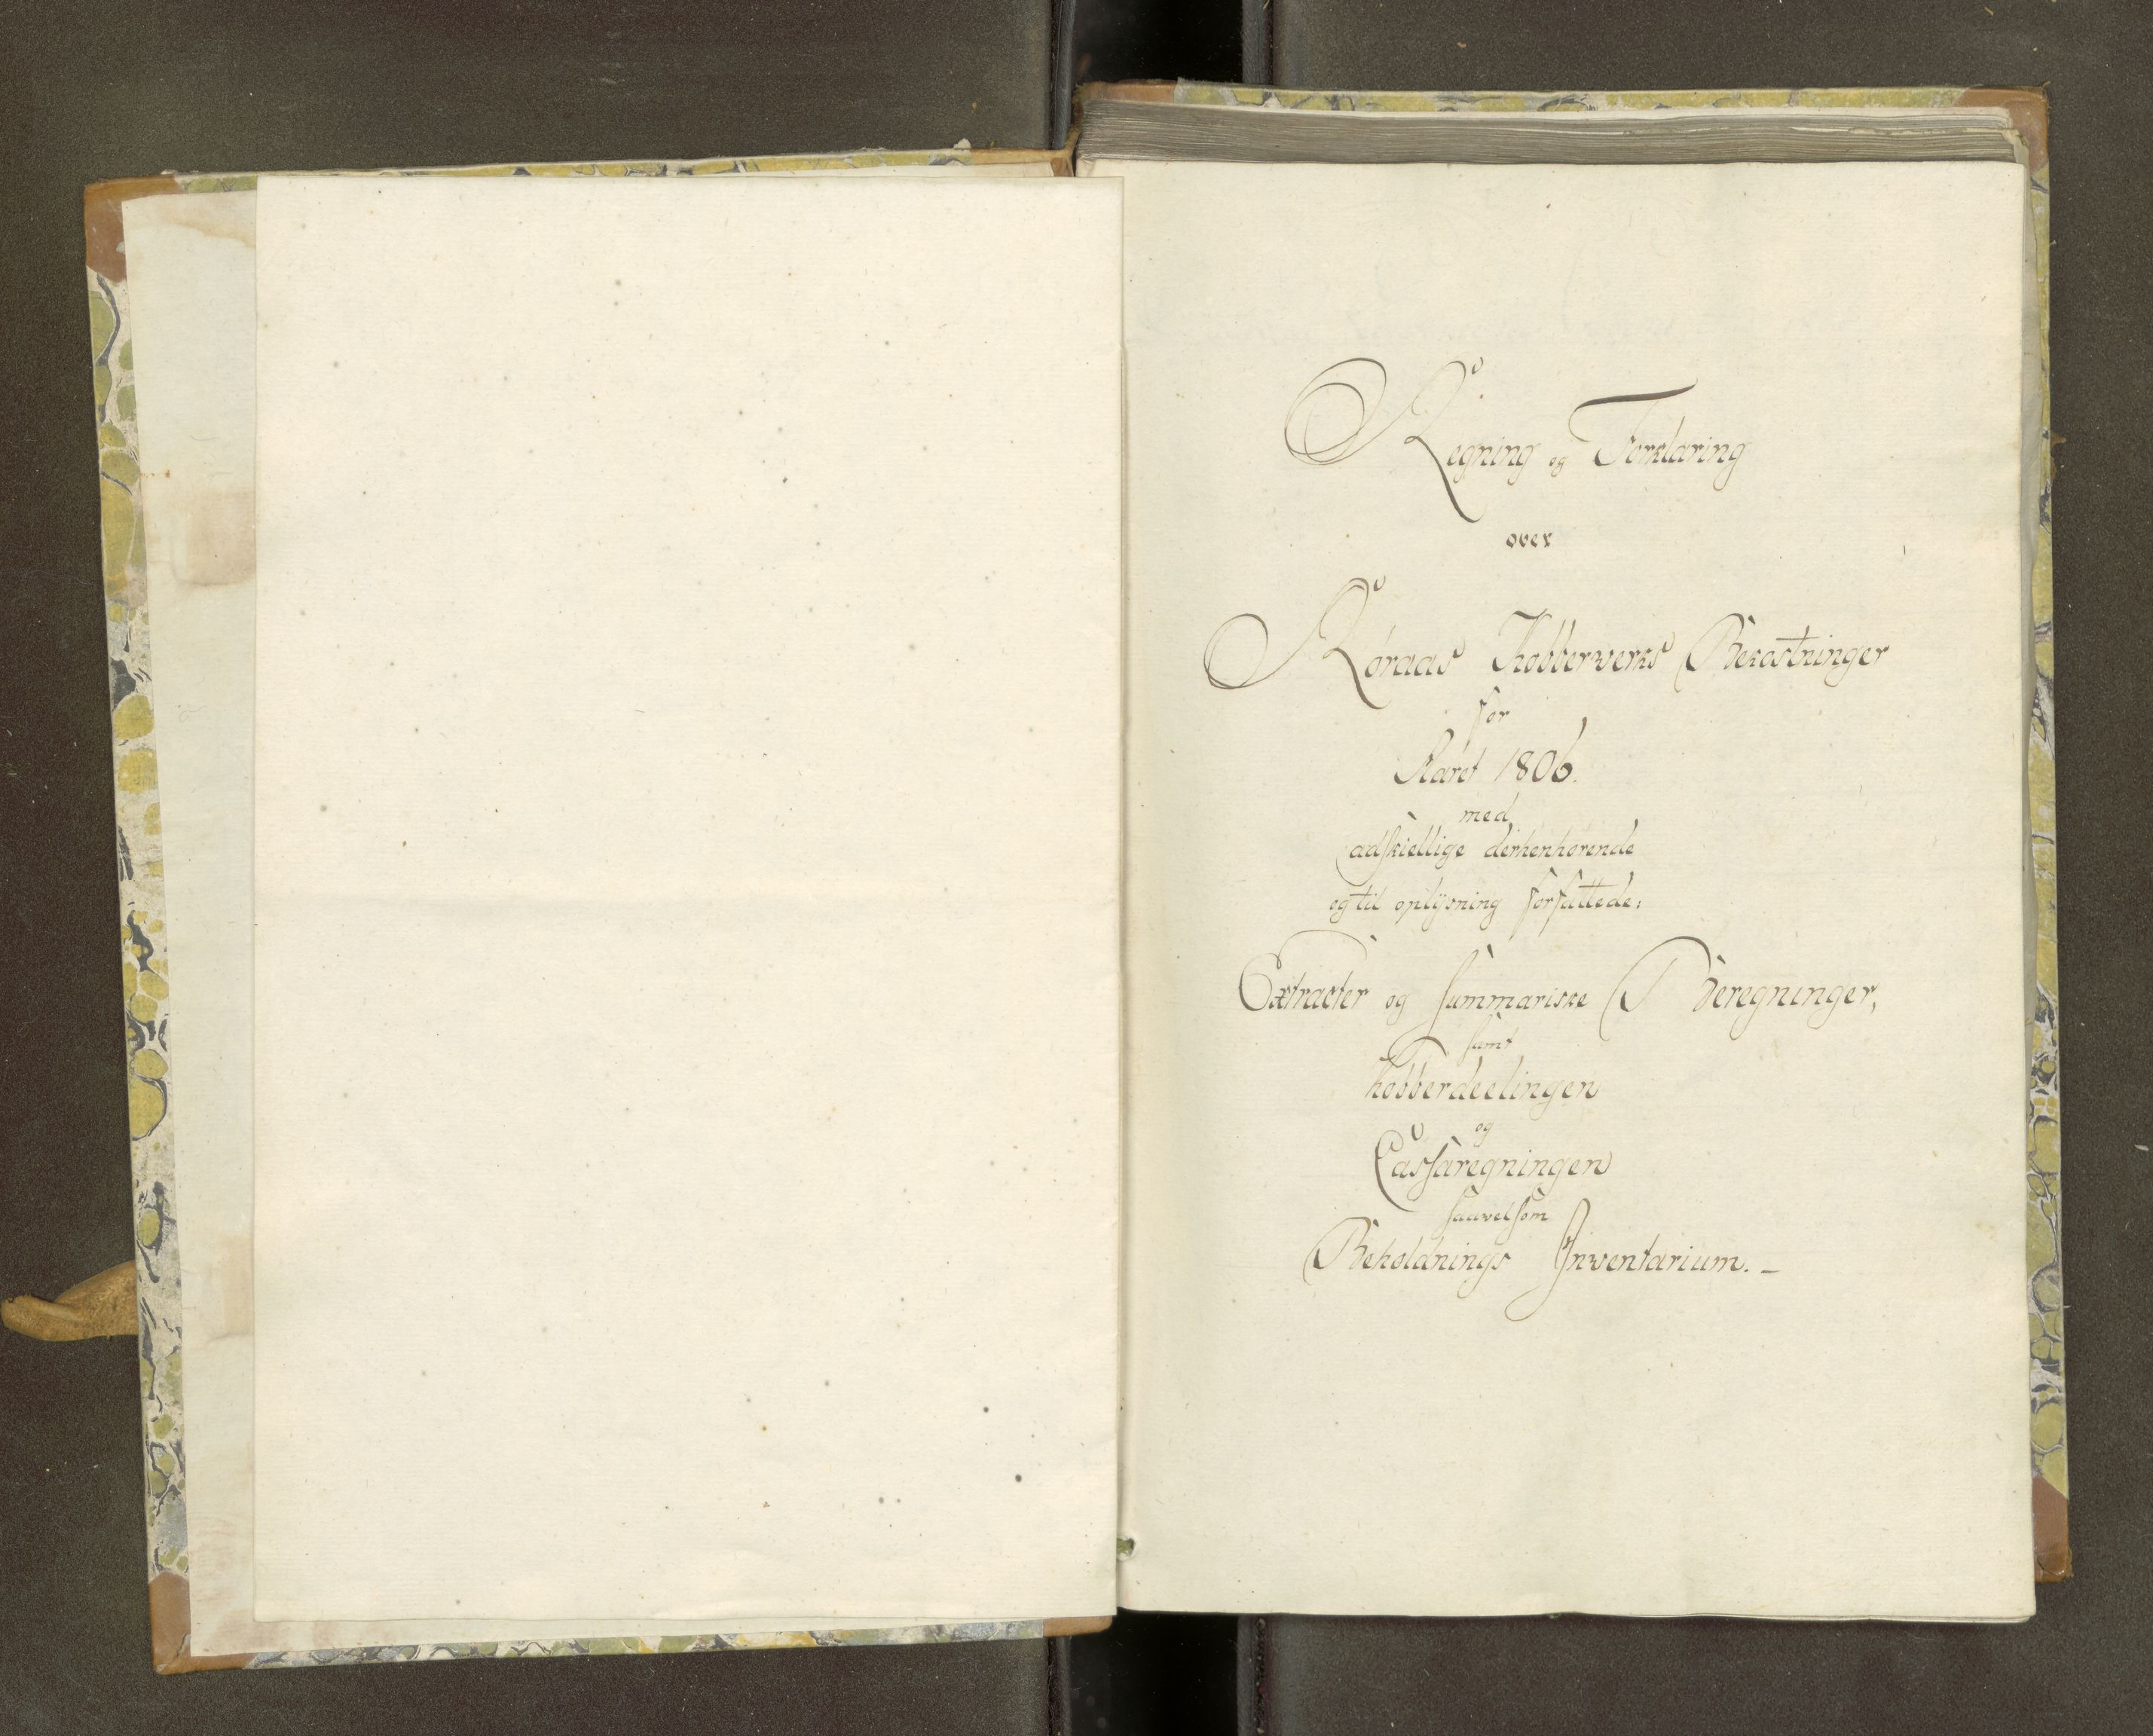 Regning og Forklaring
over
Røraas Kobberverks Bekostninger
for
Aaret 1806.
med
adskiellige derhenhørende
og til oplysning forfattede:
Extracter og Summariske Beregninger,
samt
Kobberdeelingen
og
Cassaregningen
saavelsom
Beholdnings Inventarium. –